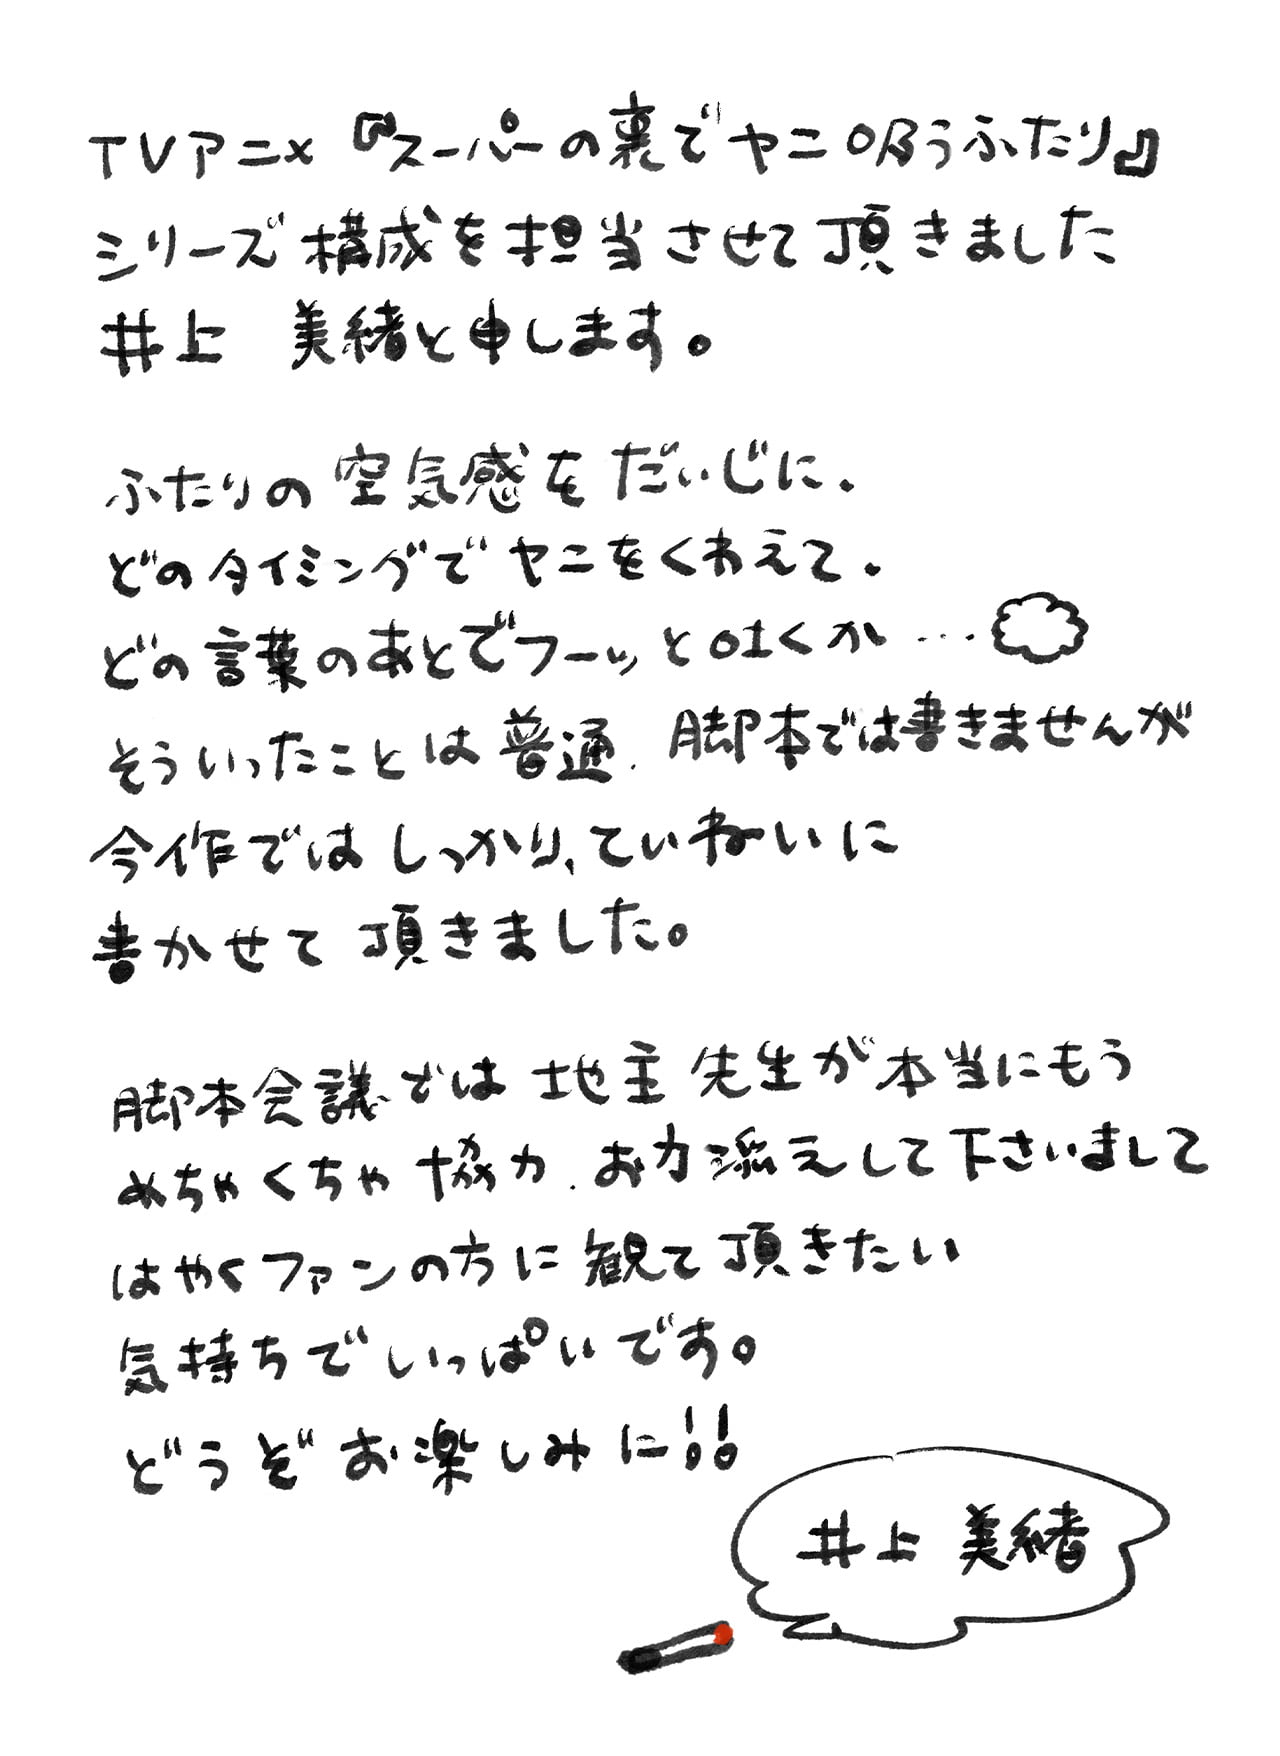 TVアニメ『スーパーの裏でヤニ吸うふたり』
シリーズ構成を担当させて頂きました
井上 美緒と申します。
ふたりの空気感をだいじに、
どのタイミングでヤニをくわえて、
どの言葉のあとでフーッと吐くか…
そういったことは普通、脚本では書きませんが
今作ではしっかり、ていねいに
書かせて頂きました。
脚本会議では地主先生が本当にもう
めちゃくちゃ協力、お力添えして下さいまして
はやくファンの方に観て頂きたい
気持ちでいっぱいです。
どうぞお楽しみに!!
井上 美緒